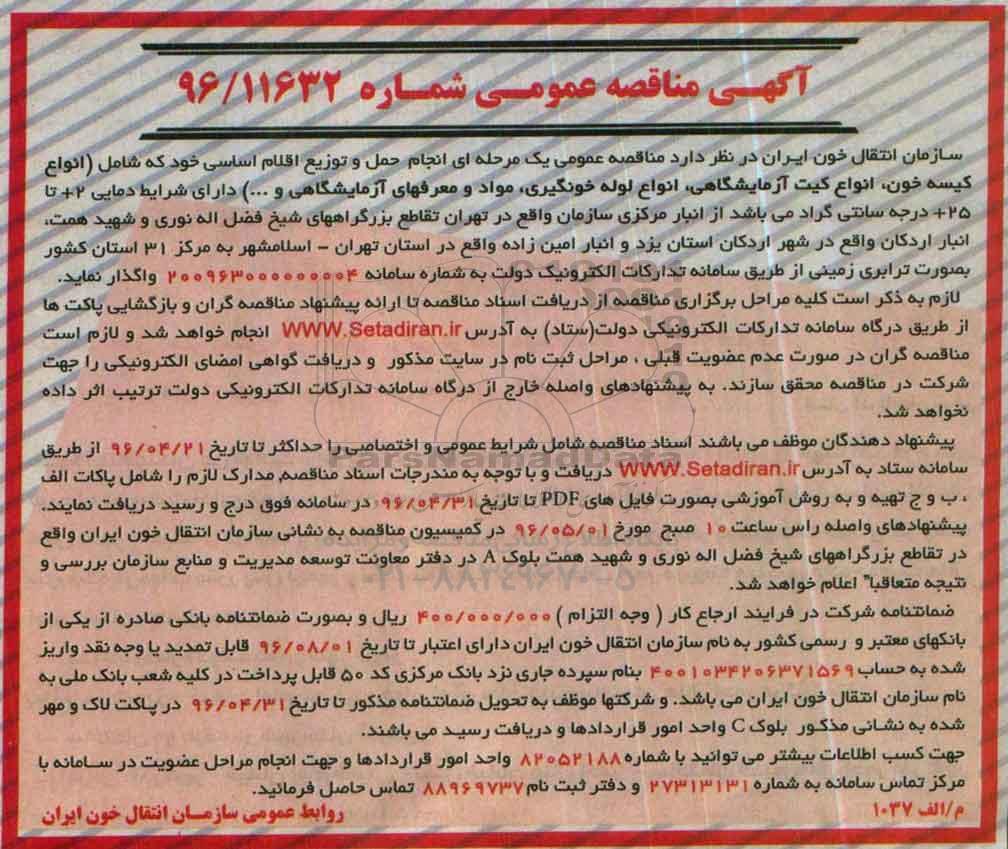 آگهـی مناقصه عمومـی شمـاره ۹۶/۱۱۶۳۲
سـازمان انتقال خون ایـران در نظر دارد مناقصه عمومی یک مرحله ای انجام حمل و توزیع اقلام اساسی خود که شامل (انواع
کیسه خون، انواع کیت آزمایشگاهی، انواع لوله خونگیری، مواد و معرفهای آزمایشگاهی و ...) دارای شرایط دمایی ۲+ تا
۲۵+ درجه سانتی گراد می باشد از انبار مرکزی سازمان واقع در تهران تقاطع بزرگراههای شیخ فضل اله نوری و شهید همت،
انبار اردکان واقع در شهر اردکان استان یزد و انبار امین زاده واقع در استان تهران - اسلامشهر به مرکز ۳۱ استان کشور
بصورت ترابری زمینی از طریق سامانه تدارکات الکترونیک دولت به شماره سامانه ۲۰۰۹۶۳۰۰۰۰۰۰۰۰۰۴ واگذار نماید.
لازم به ذکر است کلیه مراحل برگزاری مناقصه از دریافت اسناد مناقصه تا ارائه پیشنهاد مناقصه گران و بازگشایی پاکت ها
از طریق درگاه سامانه تدارکات الکترونیکی دولت(ستاد) به آدرس WWW.Setadiran.ir انجام خواهد شد و لازم است
مناقصه گران در صورت عدم عضویت قبلی ، مراحل ثبت نام در سایت مذکور و دریافت گواهی امضای الکترونیکی را جهت
شرکت در مناقصه محقق سازند. به پیشنهادهای واصله خارج از درگاه سامانه تدارکات الکترونیکی دولت ترتیب اثر داده
نخواهد شد.
پیشنهاد دهندگان موظف می باشند اسناد مناقصه شامل شرایط عمومی و اختصاصی را حداکثر تا تاریخ ۹۶/۰۴/۲۱ از طریق
سامانه ستاد به آدرس WWW.Setadiran.ir دریافت و با توجه به مندرجات اسناد مناقصه, مدارک لازم را شامل پاکات الف
، ب و ج تهیه و به روش آموزشی بصورت فایل های PDF تا تاریخ ۹۶/۰۴/۳۱ در سامانه فوق درج و رسید دریافت نمایند.
پیشنهادهای واصله راس ساعت ۱۰ صبح مورخ ۹۶/۰۵/۰۱ در کمیسیون مناقصه به نشانی سازمان انتقال خون ایران واقع
در تقاطع بزرگراههای شیخ فضل اله نوری و شهید همت بلوک A در دفتر معاونت توسعه مدیریت و منابع سازمان بررسی و
نتیجه متعاقبا" اعلام خواهد شد.
ضمانتنامه شرکت در فرایند ارجاع کار ( وجه التزام ) ۴۰۰/۰۰۰/۰۰۰ ریال و بصورت ضمانتنامه بانکی صادره از یکی از
بانکهای معتبر و رسمی کشور به نام سازمان انتقال خون ایران دارای اعتبار تا تاریخ ۹۶/۰۸/۰۱ قابل تمدید یا وجه نقد واریز
شده به حساب ۴۰۰۱۰۳۴۲۰۶۳۷۱۵۶۹ بنام سپرده جاری نزد بانک مرکزی کد ۵۰ قابل پرداخت در کلیه شعب بانک ملی به
نام سازمان انتقال خون ایران می باشد. و شرکتها موظف به تحویل ضمانتنامه مذکور تا تاریخ ۹۶/۰۴/۳۱ در پـاکت لاک و مهر
شده به نشـانی مذکـور بلوک C واحد امور قراردادها و دریافت رسیـد می باشند.
جهت کسب اطلاعات بیشتر می توانید با شماره ۸۲۰۵۲۱۸۸ واحد امور قراردادها و جهت انجام مراحل عضویت در سـامانه با
مرکز تماس سامانه به شماره ۲۷۳۱۳۱۳۱ و دفتر ثبت نام ۸۸۹۶۹۷۳۷ تماس حاصل فرمائید.
م/الف ۱۰۳۷
روابط عمومی سازمـان انتقال خون ایران
ParsNamadData
۰۲۱-۸۸۳۴۹۶۷۰-۵